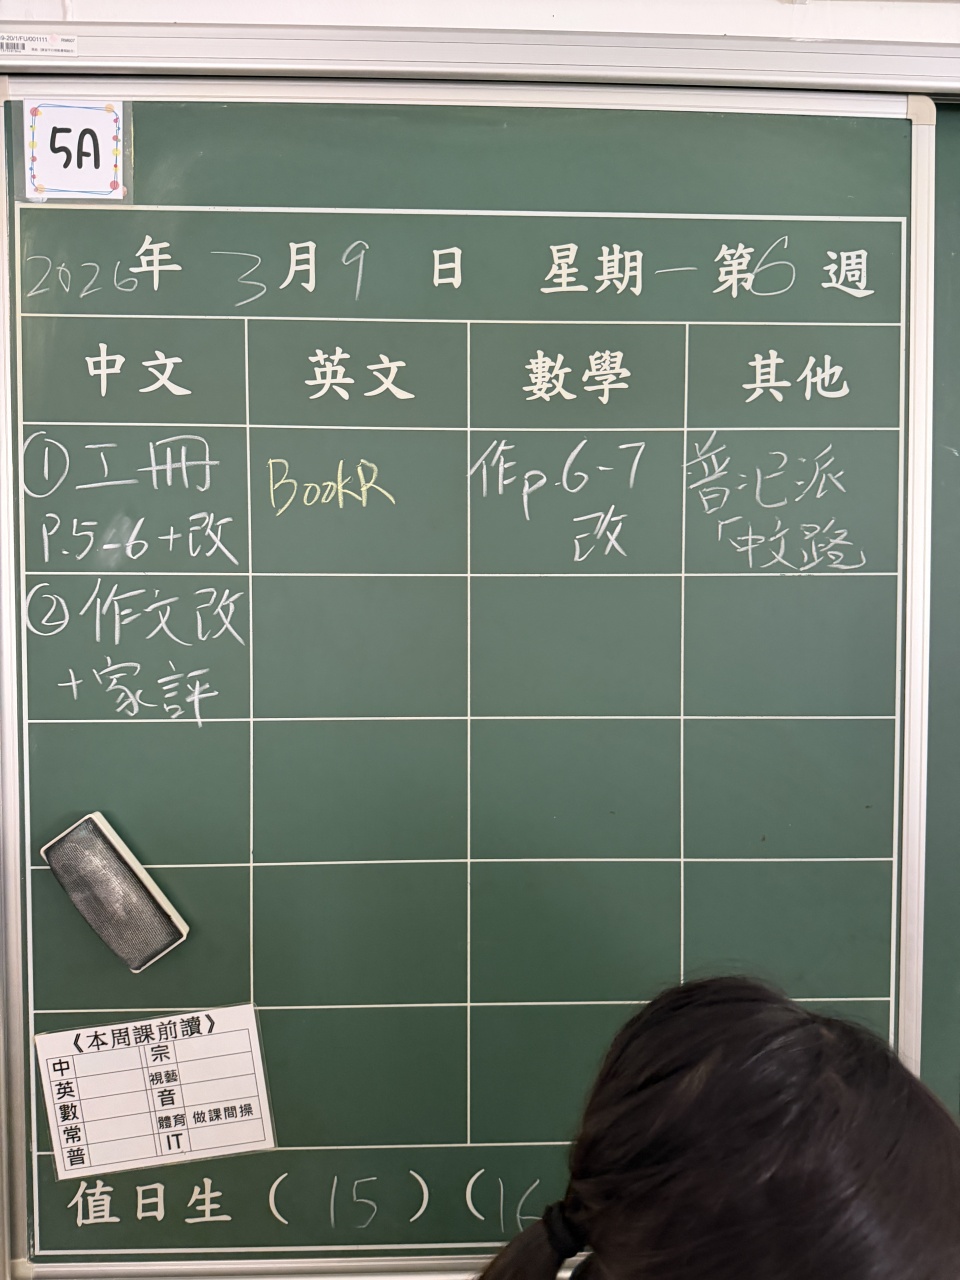 5A
2026年 3月9日 星期一 第6週
中文 英文 數學 其他
①工冊
P.5-6+改
BookR
作p.6-7
改
普汜派
「中文路
②作文改
+家評
《本周課前讀》
中 宗
英 視藝
數 音
常 體育 做課間操
普 IT
值日生 ( 15 ) ( 16